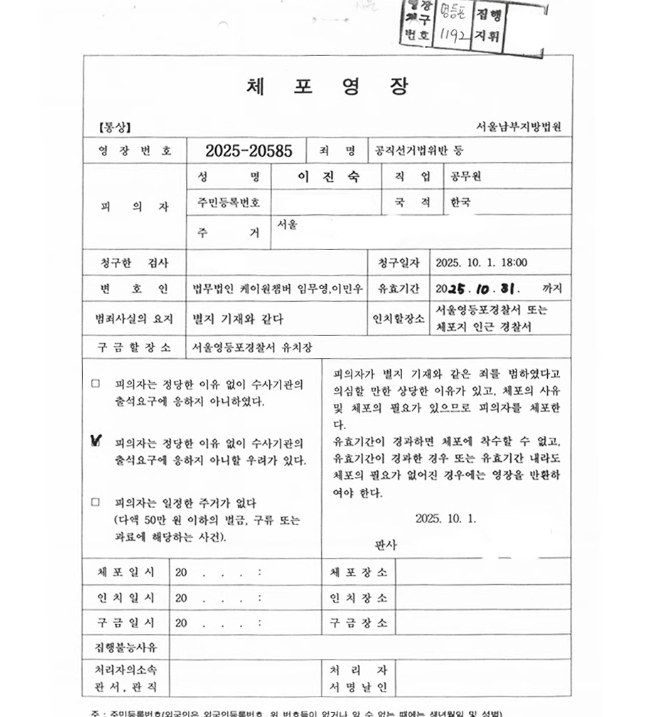 영장
청구
번호
영등포
1192
집행
지휘
체 포 영 장
【통상】
서울남부지방법원
영 장 번 호 2025-20585 죄 명 공직선거법위반 등
피 의 자
성 명 이 진 숙 직 업 공무원
주민등록번호 국 적 한국
주 거 서울
청구한 검사 청구일자 2025. 10. 1. 18:00
변 호 인 법무법인 케이원챔버 임무영,이민우 유효기간 2025. 10. 31. 까지
범죄사실의 요지 별지 기재와 같다 인치할장소 서울영등포경찰서 또는
체포지 인근 경찰서
구 금 할 장 소 서울영등포경찰서 유치장
□ 피의자는 정당한 이유 없이 수사기관의
출석요구에 응하지 아니하였다.
피의자는 정당한 이유 없이 수사기관의
출석요구에 응하지 아니할 우려가 있다.
□ 피의자는 일정한 주거가 없다
(다액 50만 원 이하의 벌금, 구류 또는
과료에 해당하는 사건).
피의자가 별지 기재와 같은 죄를 범하였다고
의심할 만한 상당한 이유가 있고, 체포의 사유
및 체포의 필요가 있으므로 피의자를 체포한
다.
유효기간이 경과하면 체포에 착수할 수 없고,
유효기간이 경과한 경우 또는 유효기간 내라도
체포의 필요가 없어진 경우에는 영장을 반환하
여야 한다.
2025. 10. 1.
판사
체 포 일 시 20 . . . : 체 포 장 소
인 치 일 시 20 . . . : 인 치 장 소
구 금 일 시 20 . . . : 구 금 장 소
집행불능사유
처리자의소속
관 서 , 관 직
처 리 자
서 명 날 인
주 : 주민등록번호(외국인은 외국인등록번호, 위 번호들이 없거나 알 수 없는 때에는 생년월일 및 성별)